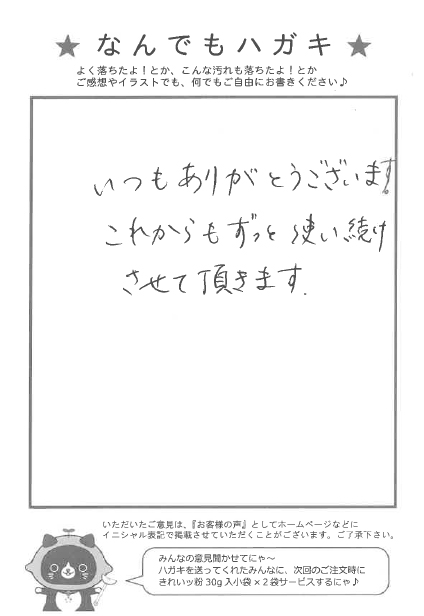 ★ なんでもハガキ ★
よく落ちたよ！とか、こんな汚れも落ちたよ！とか
ご感想やイラストでも、何でもご自由にお書きください♪
いつもありがとうございます。
これからもずっと使い続け
させて頂きます.
いただいたご意見は、『お客様の声』としてホームページなどに
イニシャル表記で掲載させていただくことがございます。ご了承下さい。
みんなの意見聞かせてにゃ〜
ハガキを送ってくれたみんなに、次回のご注文時に
きれいッ粉 30g 入小袋 × 2 袋サービスするにゃ♪